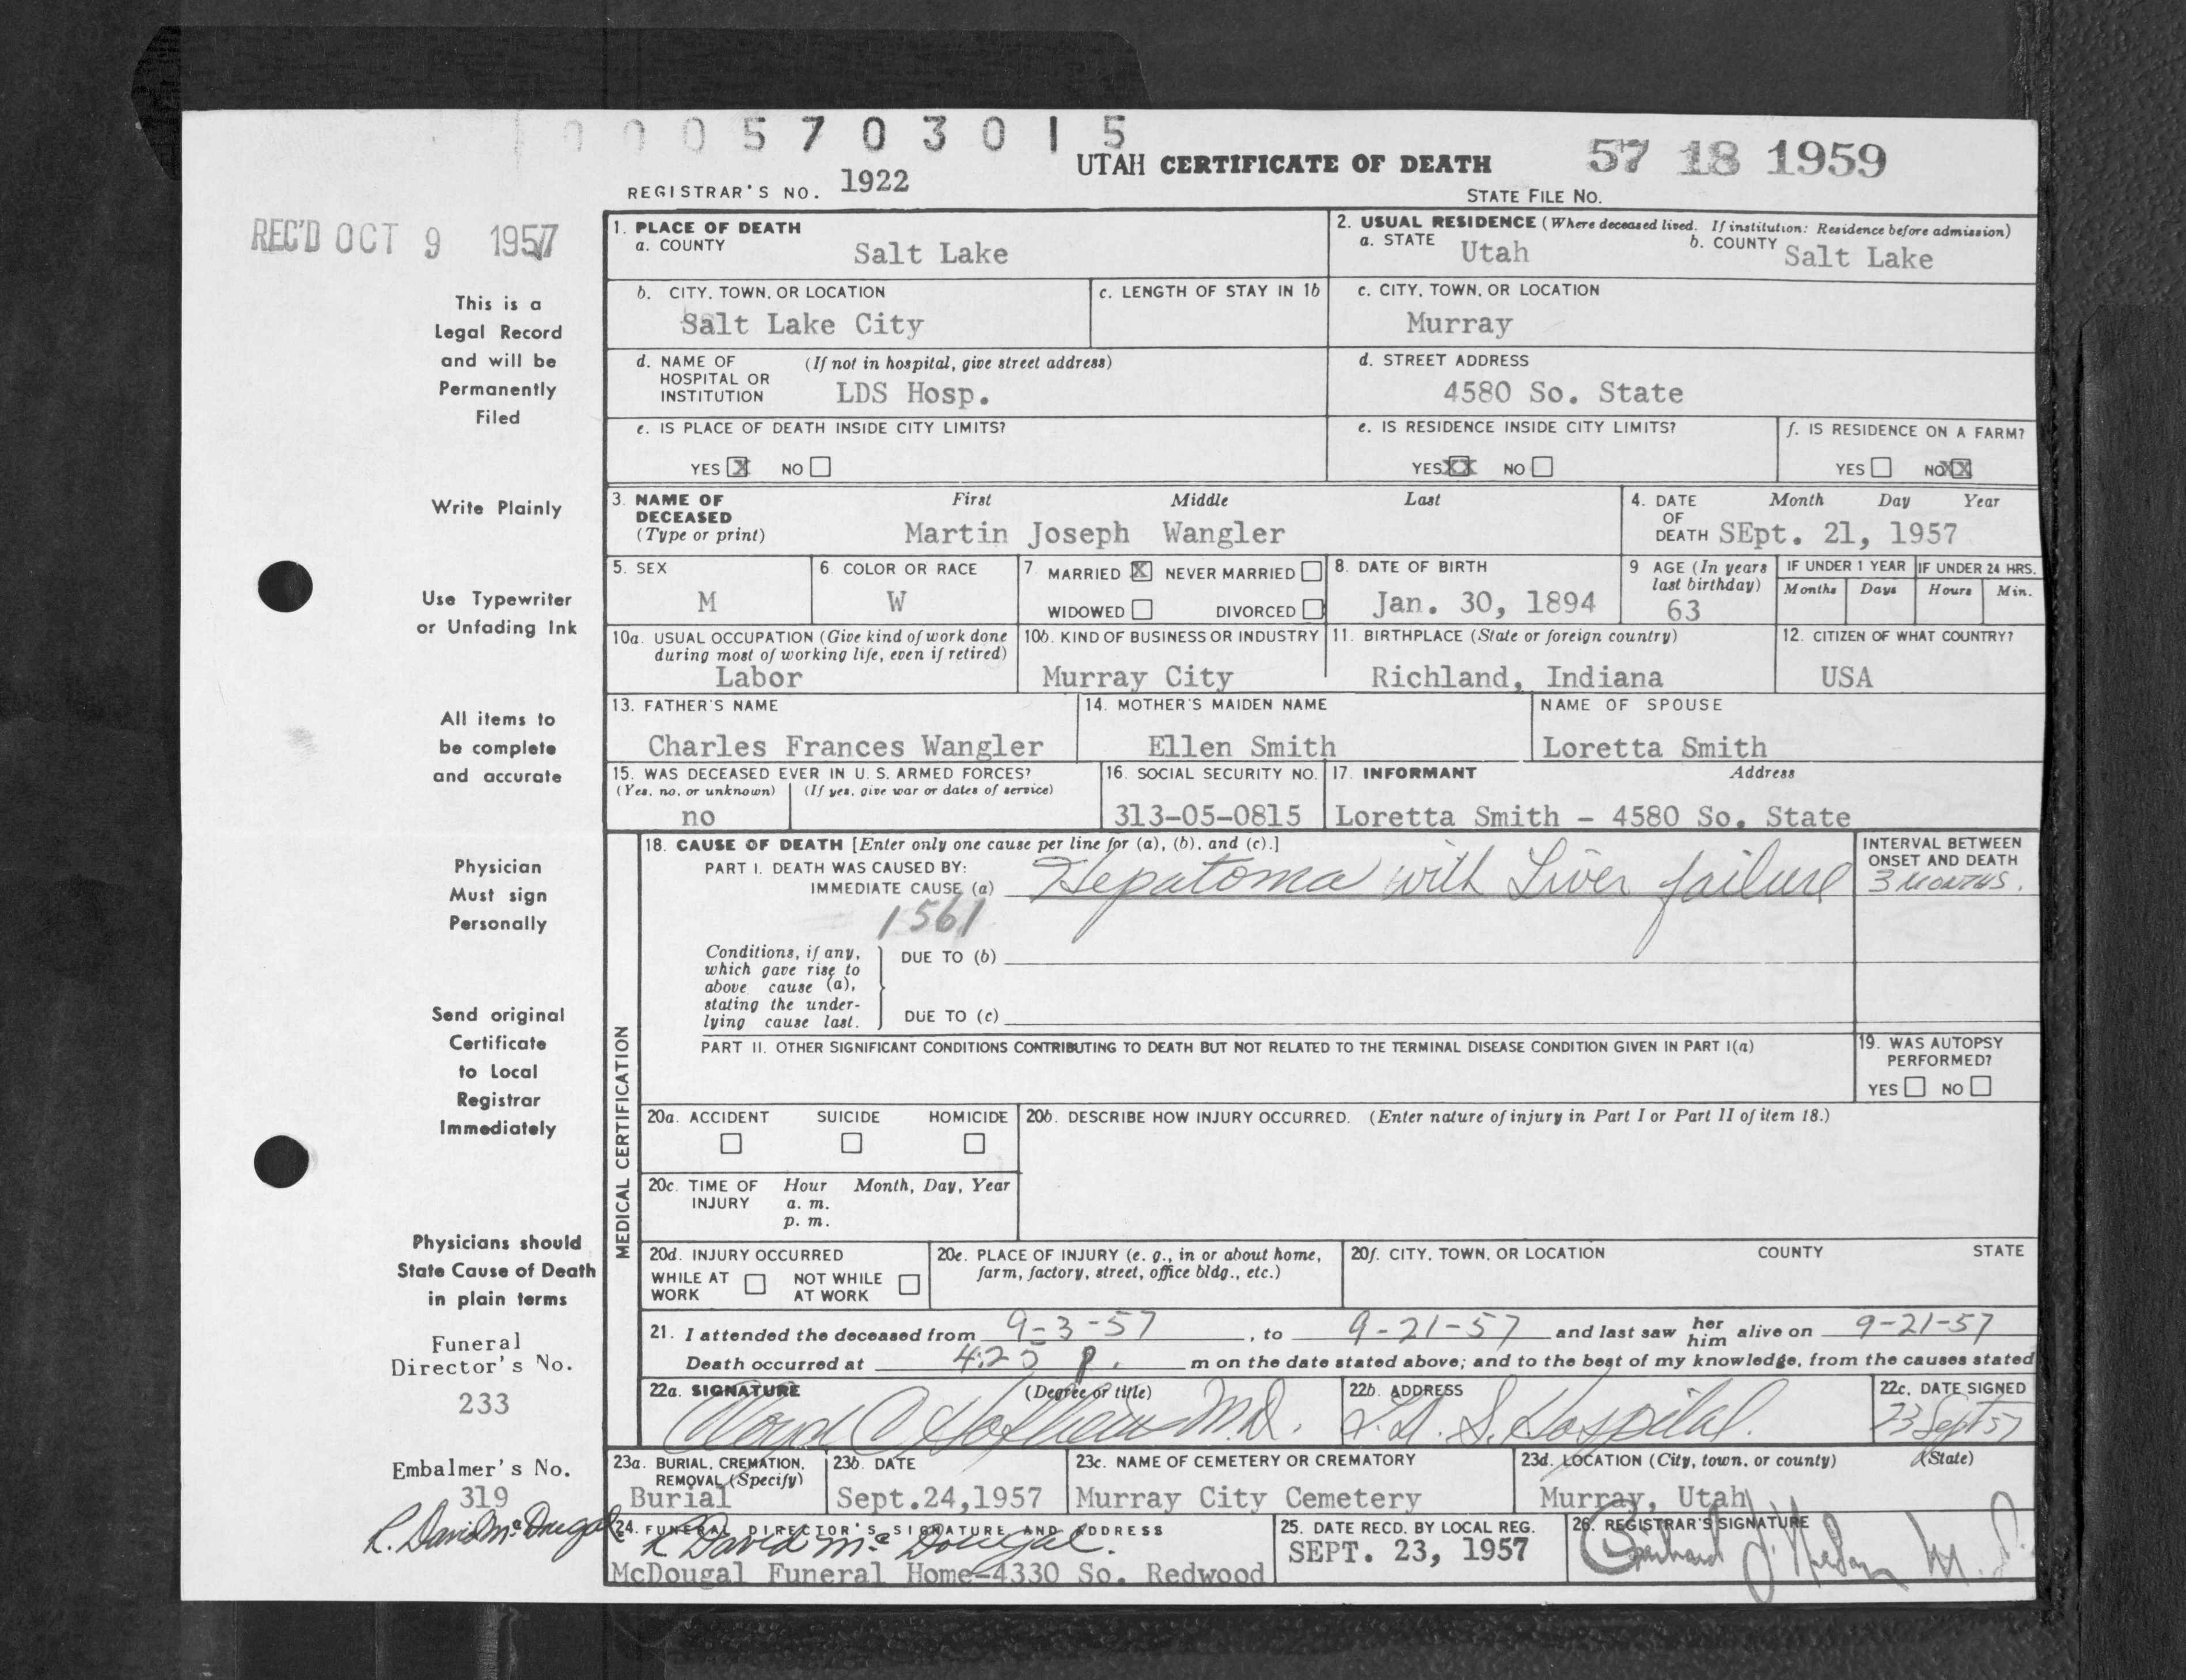 0 0 0 5 7 0 3 0 1 5
UTAH CERTIFICATE OF DEATH
57 18 1959
REGISTRAR'S NO. 1922
STATE FILE NO.
REC'D OCT 9 1957
This is a
Legal Record
and will be
Permanently
Filed
Write Plainly
Use Typewriter
or Unfading Ink
All items to
be complete
and accurate
Physician
Must sign
Personally
Send original
Certificate
to Local
Registrar
Immediately
Physicians should
State Cause of Death
in plain terms
Funeral
Director's No.
233
Embalmer's No.
319
R. David McDougal
1. PLACE OF DEATH
a. COUNTY
Salt Lake
2. USUAL RESIDENCE (Where deceased lived. If institution: Residence before admission)
a. STATE Utah b. COUNTY Salt Lake
b. CITY, TOWN, OR LOCATION
Salt Lake City
c. LENGTH OF STAY IN 1b
c. CITY, TOWN, OR LOCATION
Murray
d. NAME OF (If not in hospital, give street address)
HOSPITAL OR
INSTITUTION LDS Hosp.
d. STREET ADDRESS
4580 So. State
e. IS PLACE OF DEATH INSIDE CITY LIMITS?
YES X NO
e. IS RESIDENCE INSIDE CITY LIMITS?
YES XX NO
f. IS RESIDENCE ON A FARM?
YES NO XX
3. NAME OF First Middle Last
DECEASED
(Type or print) Martin Joseph Wangler
4. DATE Month Day Year
OF
DEATH SEpt. 21, 1957
5. SEX
M
6. COLOR OR RACE
W
7 MARRIED X NEVER MARRIED
WIDOWED DIVORCED
8. DATE OF BIRTH
Jan. 30, 1894
9 AGE (In years
last birthday)
63
IF UNDER 1 YEAR IF UNDER 24 HRS.
Months Days Hours Min.
10a. USUAL OCCUPATION (Give kind of work done
during most of working life, even if retired)
Labor
10b. KIND OF BUSINESS OR INDUSTRY
Murray City
11. BIRTHPLACE (State or foreign country)
Richland, Indiana
12. CITIZEN OF WHAT COUNTRY?
USA
13. FATHER'S NAME
Charles Frances Wangler
14. MOTHER'S MAIDEN NAME
Ellen Smith
NAME OF SPOUSE
Loretta Smith
15. WAS DECEASED EVER IN U. S. ARMED FORCES?
(Yes, no, or unknown) (If yes, give war or dates of service)
no
16. SOCIAL SECURITY NO.
313-05-0815
17. INFORMANT Address
Loretta Smith - 4580 So. State
MEDICAL CERTIFICATION
18. CAUSE OF DEATH [Enter only one cause per line for (a), (b), and (c).]
PART I. DEATH WAS CAUSED BY:
IMMEDIATE CAUSE (a) Hepatoma with Liver failure
1561
INTERVAL BETWEEN
ONSET AND DEATH
3 MONTHS.
Conditions, if any,
which gave rise to
above cause (a),
stating the under-
lying cause last.
DUE TO (b)
DUE TO (c)
PART II. OTHER SIGNIFICANT CONDITIONS CONTRIBUTING TO DEATH BUT NOT RELATED TO THE TERMINAL DISEASE CONDITION GIVEN IN PART I(a)
19. WAS AUTOPSY
PERFORMED?
YES NO
20a. ACCIDENT SUICIDE HOMICIDE
20b. DESCRIBE HOW INJURY OCCURRED. (Enter nature of injury in Part I or Part II of item 18.)
20c. TIME OF Hour Month, Day, Year
INJURY a. m.
p. m.
20d. INJURY OCCURRED
WHILE AT NOT WHILE
WORK AT WORK
20e. PLACE OF INJURY (e. g., in or about home,
farm, factory, street, office bldg., etc.)
20f. CITY, TOWN, OR LOCATION COUNTY STATE
21. I attended the deceased from 9-3-57, to 9-21-57 and last saw her him alive on 9-21-57
Death occurred at 4:25 P. m on the date stated above; and to the best of my knowledge, from the causes stated
22a. SIGNATURE (Degree or title)
M.D.
22b. ADDRESS
L.D.S. Hospital.
22c. DATE SIGNED
23 Sept 57
23a. BURIAL, CREMATION,
REMOVAL (Specify)
Burial
23b. DATE
Sept.24,1957
23c. NAME OF CEMETERY OR CREMATORY
Murray City Cemetery
23d. LOCATION (City, town, or county) (State)
Murray, Utah
24. FUNERAL DIRECTOR'S SIGNATURE AND ADDRESS
R David McDougal.
McDougal Funeral Home-4330 So. Redwood
25. DATE RECD. BY LOCAL REG.
SEPT. 23, 1957
26. REGISTRAR'S SIGNATURE